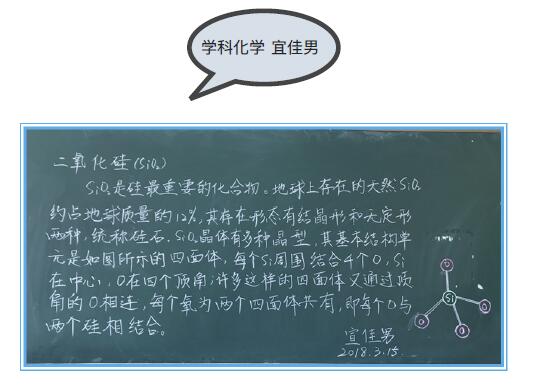 学科化学 宜佳男
二氧化硅(SiO₂)
SiO₂是硅最重要的化合物。地球上存在的天然SiO₂
约占地球质量的12%,其存在形态有结晶形和无定形
两种,统称硅石。SiO₂晶体有多种晶型,其基本结构单
元是如图所示的四面体,每个Si周围结合4个O,Si
在中心,O在四个顶角;许多这样的四面体又通过顶
角的O相连,每个氧为两个四面体共有,即每个O与
两个硅相结合。
O
Si
O
O
O
宜佳男
2018.3.15